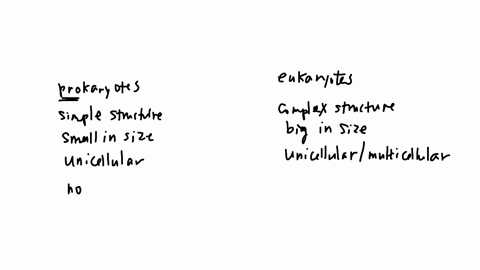 prokaryotes
simple structure
small in size
unicellular
no
eukaryotes
complex structure
big in size
unicellular/multicellular